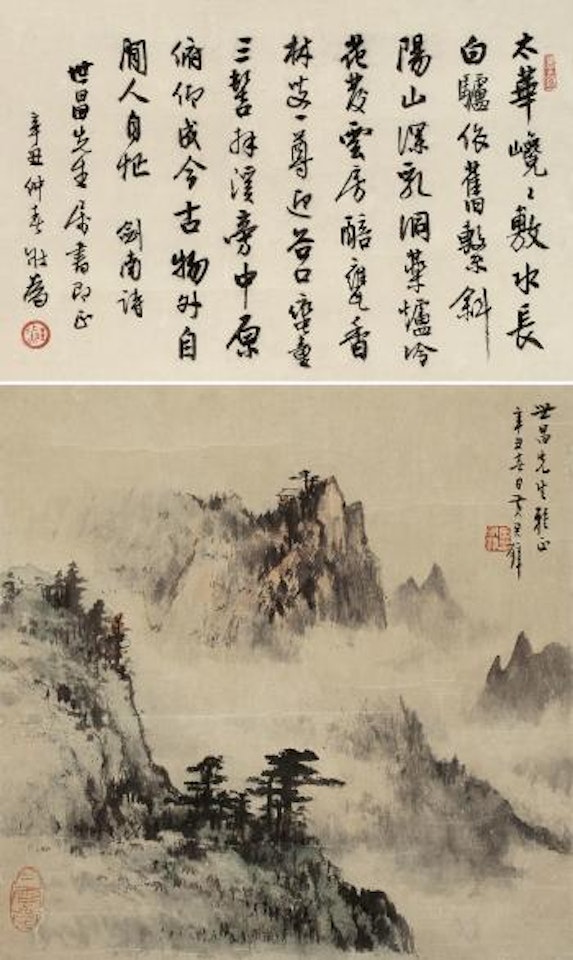 太華嶢〻敷水長
白驢依舊繫斜
陽山深乳洞藥爐冷
花發雲房醅甕香
林叟一尊迎谷口蠻童
三髻拜溪旁中原
俯仰成今古物外自
閒人自忙 劍南詩
世昌先生屬書即正
辛丑仲春壯為
世昌先生雅正
辛丑春日黃君璧